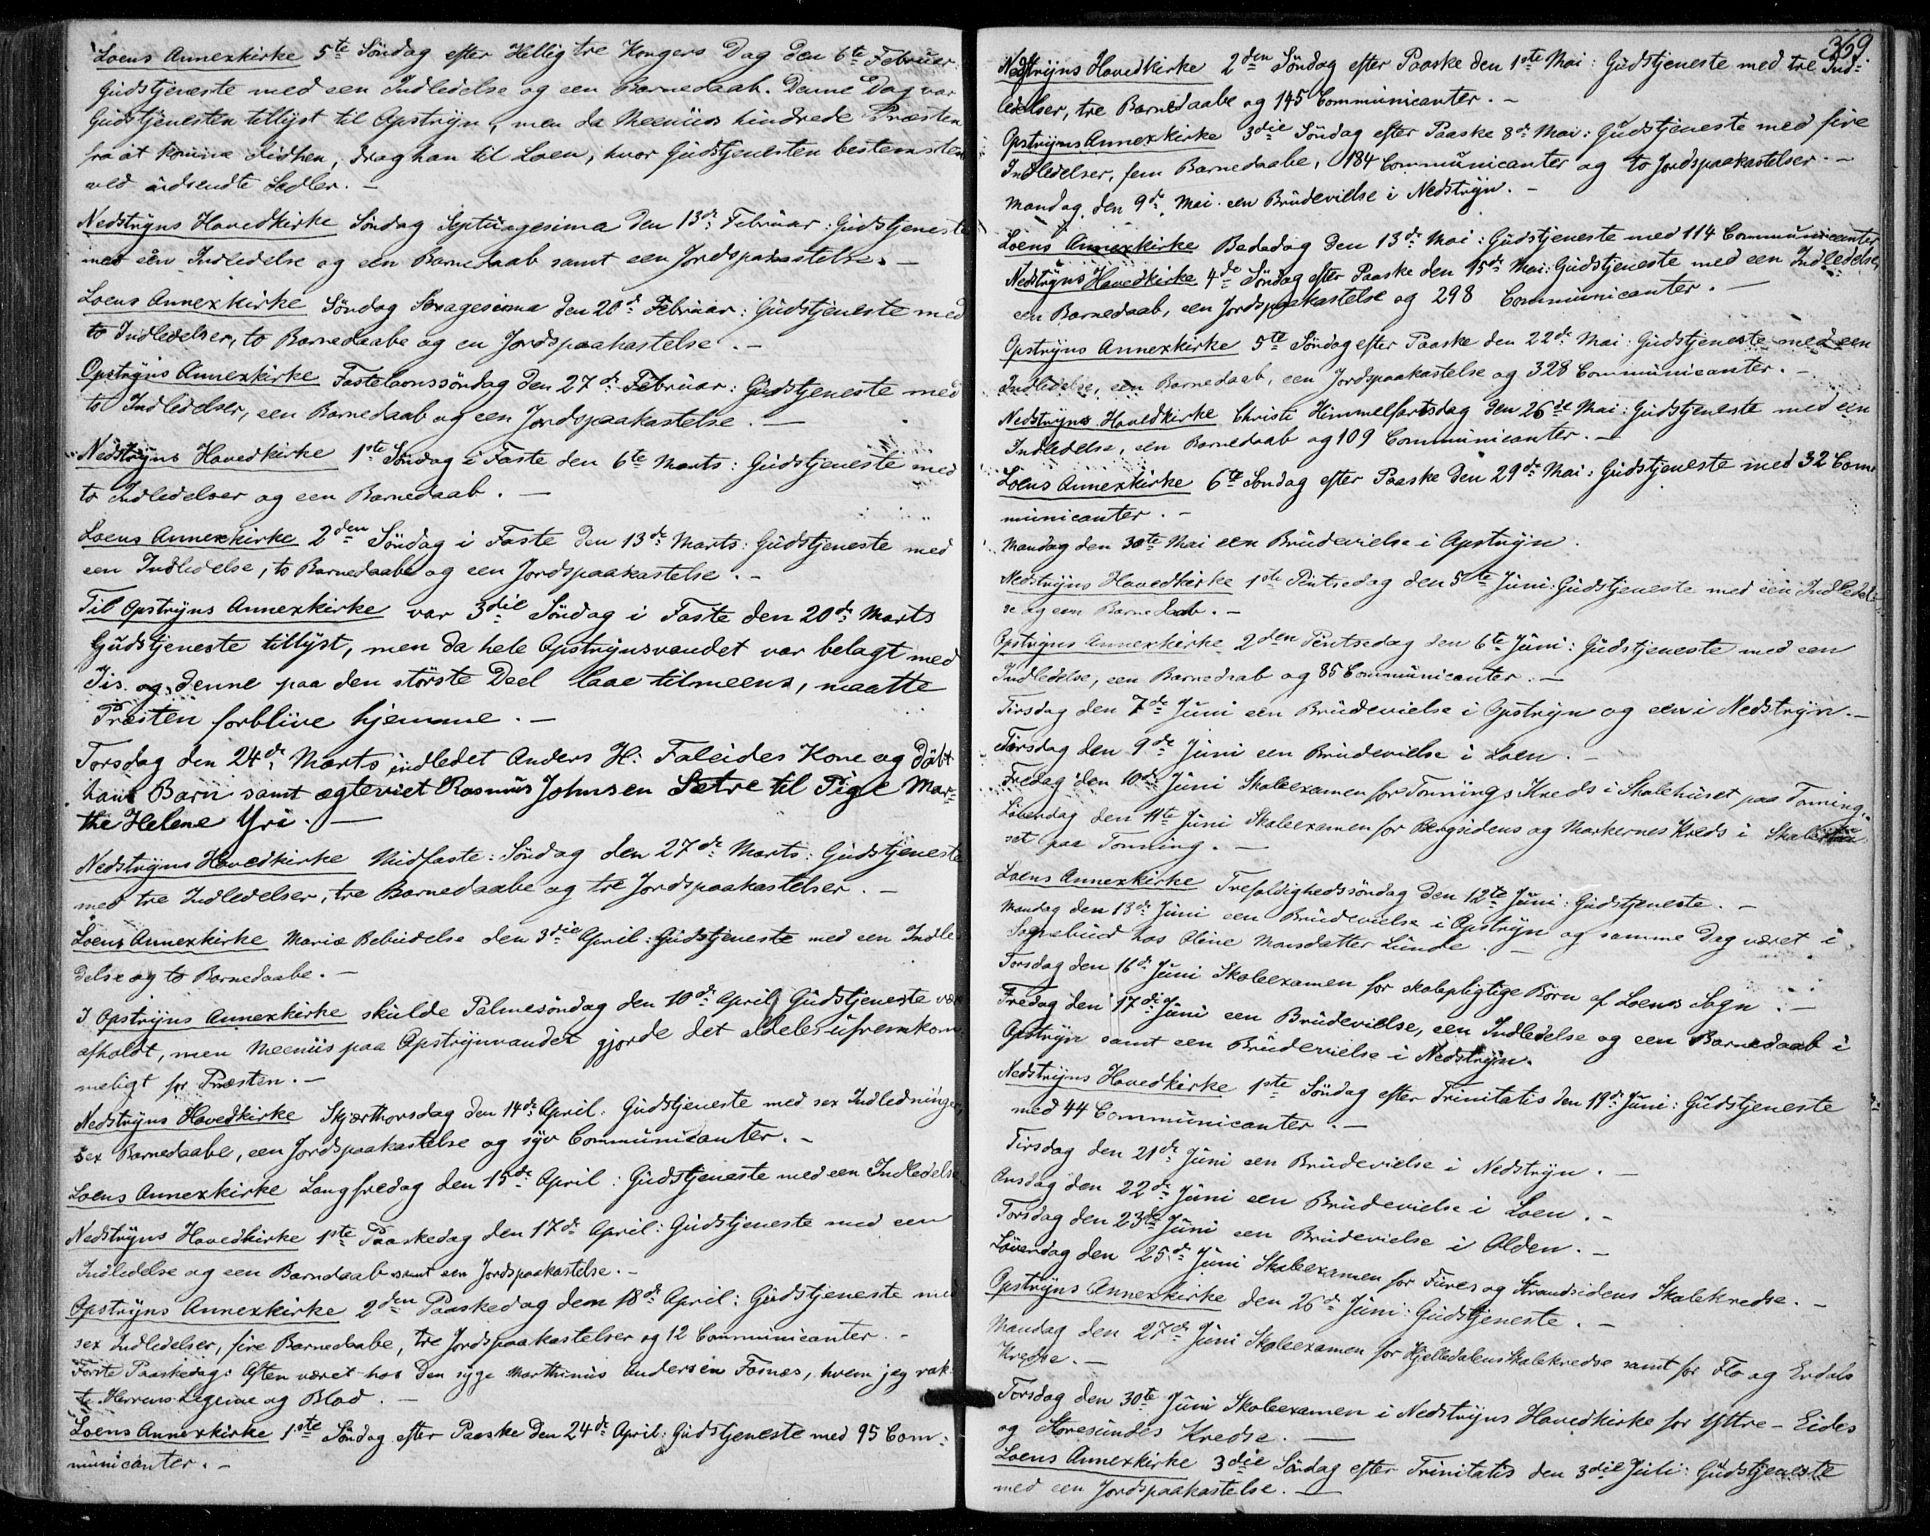 Loens Annexkirke 5te Söndag efter Hellig tre Kongers Dag den 6te Februar:
Gudstjeneste med een Indledelse og een Barnedaab. Denne Dag var
Gudstjenesten tillyst til Opstryn, men da Meeniis hindrede Præsten
fra at komme didhen, drog han til Loen, hvor Gudstjenesten bestemtes
ved udsendte Sedler. –
Nedstryns Hovedkirke Söndag Septuagesima den 13de Februar: Gudstjeneste
med een Indledelse og een Barnedaab samt een Jordspaakastelse. –
Loens Annexkirke Söndag Sexagesima den 20de Februar: Gudstjeneste med
to Indledelser, to Barnedaabe og en Jordspaakastelse. –
Opstryns Annexkirke Fastelavnssöndag den 27de Februar: Gudstjeneste med
to Indledelser, een Barnedaab og een Jordspaakastelse. –
Nedstryns Hovedkirke 1ste Söndag i Faste den 6te Marts: Gudstjeneste med
to Indledelser og een Barnedaab. –
Loens Annexkirke 2den Söndag i Faste den 13de Marts: Gudstjeneste med
een Indledelse, to Barnedaabe og een Jordspaakastelse. –
Til Opstryns Annexkirke var 3die Söndag i Faste den 20de Marts
Gudstjeneste tillyst, men da hele Opstrynsvandet var belagt med
Iis og denne paa den störste Deel laae tilmeens, maatte
Præsten forblive hjemme. –
Torsdag den 24de Marts indledet Anders H: Faleides Kone og döbt
hans Barn samt ægteviet Rasmus Johnsen Sætre til Pige Mar-
the Helene Yri. –
Nedstryns Hovedkirke Midfaste-Söndag den 27de Marts: Gudstjeneste
med tre Indledelser, tre Barnedaabe og tre Jordspaakastelser. –
Loens Annexkirke Mariæ Bebudelse den 3die April: Gudstjeneste med een Indle-
delse og to Barnedaabe. –
I Opstryns Annexkirke skulde Palmesöndag den 10de April Gudstjeneste være
afholdt, men Meeniis paa Opstrynvandet gjorde det aldeles ufremkom-
meligt for Præsten. –
Nedstryns Hovedkirke Skjærthorsdag den 14de April: Gudstjeneste med sex Indledninger,
sex Barnedaabe, een Jordspaakastelse og syv Communicanter. –
Loens Annexkirke Langfredag den 15de April: Gudstjeneste med een Indledelse.
Nedstryns Hovedkirke 1ste Paaskedag den 17de April: Gudstjeneste med een
Indledelse og een Barnedaab samt een Jordspaakastelse. –
Opstryns Annexkirke 2den Paaskedag den 18de April: Gudstjeneste med
sex Indledelser, fire Barnedaabe, tre Jordspaakastelser og 12 Communicanter. –
Förste Paaskedags Aften været hos den syge Marthinus Andersen Fosnæs, hvem jeg rak-
te Herrens Legeme og Blod. –
Loens Annexkirke 1ste Söndag efter Paaske den 24de April: Gudstjeneste med 95 Com-
municanter. –
369
Nedstryns Hovedkirke 2den Söndag efter Paaske den 1ste Mai: Gudstjeneste med tre Ind-
ledelser, tre Barnedaabe og 145 Communicanter. –
Opstryns Annexkirke 3die Söndag efter Paaske 8de Mai: Gudstjeneste med fire
Indledelser, fem Barnedaabe, 184 Communicanter og to Jordspaakastelser. –
Mandag den 9de Mai een Brudevielse i Nedstryn. –
Loens Annexkirke Bededag den 13de Mai: Gudstjeneste med 114 Communicanter
Nedstryns Hovedkirke 4de Söndag efter Paaske den 15de Mai: Gudstjeneste med een Indledelse,
een Barnedaab, een Jordspaakastelse og 298 Communicanter. –
Opstryns Annexkirke 5te Söndag efter Paaske den 22de Mai: Gudstjeneste med een
Indledelse, een Barnedaab, een Jordspaakastelse og 328 Communicanter. –
Nedstryns Hovedkirke Christi Himmelfartsdag den 26de Mai: Gudstjeneste med een
Indledelse, een Barnedaab og 109 Communicanter. –
Loens Annexkirke 6te Söndag efter Paaske den 29de Mai: Gudstjeneste med 32 Com-
municanter. –
Mandag den 30te Mai een Brudevielse i Opstryn.
Nedstryns Hovedkirke 1ste Pintsedag den 5te Juni: Gudstjeneste med een Indledel-
se og een Barnedaab. –
Opstryns Annexkirke 2den Pintsedag den 6te Juni: Gudstjeneste med een
Indledelse, een Barnedaab og 85 Communicanter. –
Tirsdag den 7de Juni een Brudevielse i Opstryn og een i Nedstryn. –
Torsdag den 9de Juni een Brudevielse i Loen. –
Fredag den 10de Juni Skoleexamen for Tonnings Kreds i Skolehuset paa Tonning.
Löverdag den 11te Juni Skoleexamen for Bergsidens og Markernes Kreds i Skolehu-
set paa Tonning. –
Loens Annexkirke Trefoldighedssöndag den 12te Juni: Gudstjeneste. –
Mandag den 13de Juni een Brudevielse i Opstryn og samme Dag været i
Sognebud hos Oline Monsdatter Lunde. –
Torsdag den 16de Juni Skoleexamen for skolepligtige Börn af Loens Sogn. –
Fredag den 17de Juni een Brudevielse, een Indledelse og een Barnedaab i
Opstryn samt een Brudevielse i Nedstryn.
Nedstryns Hovedkirke 1ste Söndag efter Trinitatis den 19de Juni: Gudstjeneste
med 44 Communicanter. –
Tirsdag den 21de Juni een Brudevielse i Nedstryn. –
Onsdag den 22de Juni een Brudevielse i Loen. –
Torsdag den 23de Juni een Brudevielse i Olden. –
Löverdag den 25de Juni Skoleexamen for Fures og Strandsidens Skolekredse. –
Opstryns Annexkirke den 26de Juni: Gudstjeneste. –
Mandag den 27de Juni Skoleexamen for Hjelledalens Skolekredse samt for Flo og Erdals
Kredse. –
Torsdag den 30te Juni Skoleexamen i Nedstryns Hovedkirke for Yttre-Eides
og Storesundes Kredse. –
Loens Annexkirke 3die Söndag efter Trinitatis den 3die Juli: Gudstjeneste
med een Jordspaakastelse. –